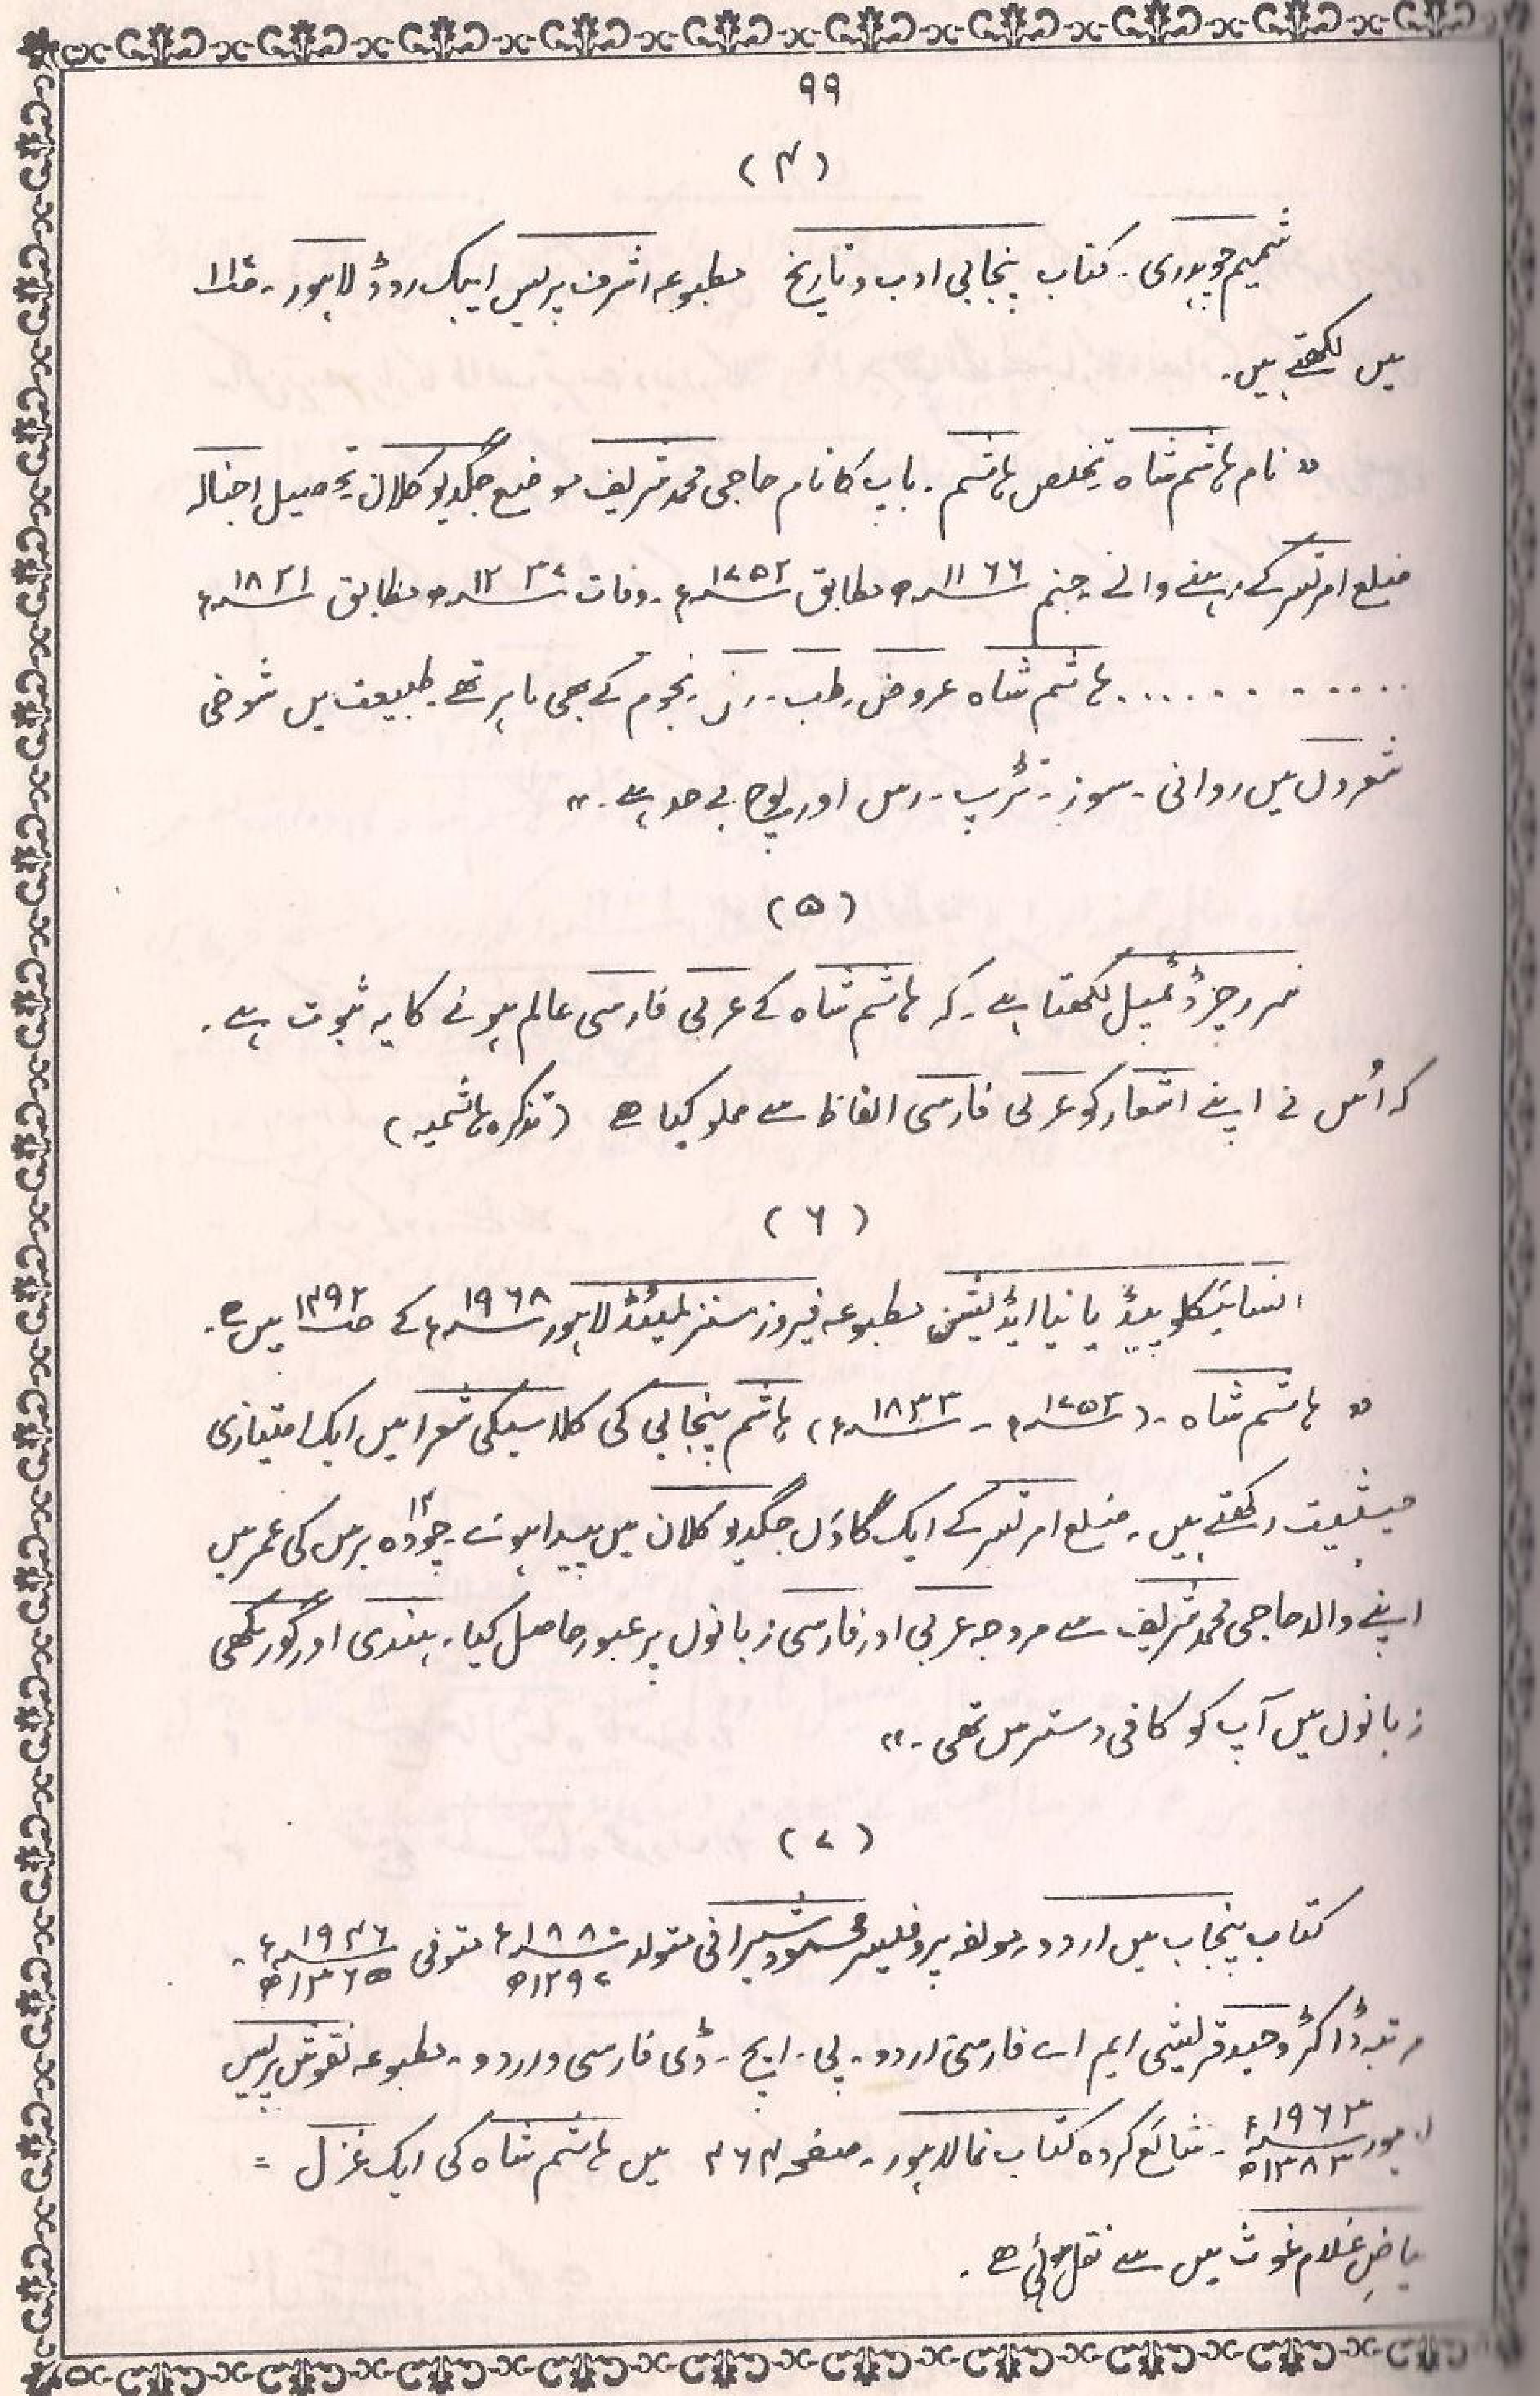 ۹۹
(۴)
شمیم چوہدری۔ کتاب پنجابی ادب و تاریخ مطبوعہ اشرف پریس ایبک روڈ لاہور۔ ص۱۱۷
میں لکھتے ہیں۔
" نام ہاشم شاہ تخلص ہاشم۔ باپ کا نام حاجی محمد شریف موضع جگدیو کلاں تحصیل اجنالہ
ضلع امرتسر کے رہنے والے۔ جنم ۱۱۶۶ھ مطابق ۱۷۵۲ء۔ وفات ۱۲۳۷ھ مطابق ۱۸۲۱ء
............. ہاشم شاہ عروض۔ طب۔ نجوم کے بھی ماہر تھے۔ طبیعت میں شوخی
شعروں میں روانی۔ سوز۔ تڑپ۔ رس اور لوچ بے حد ہے۔"
(۵)
سر رچرڈ ٹمپل لکھتا ہے۔ کہ ہاشم شاہ کے عربی فارسی عالم ہونے کا یہ ثبوت ہے۔
کہ اُس نے اپنے اشعار کو عربی فارسی الفاظ سے مملو کیا ہے (تذکرہ ہاشمیہ)
(۶)
انسائیکلوپیڈیا نیا ایڈیشن مطبوعہ فیروز سنز لمیٹڈ لاہور ۱۹۶۸ء کے ص۱۴۹۲ میں ہے۔
" ہاشم شاہ۔ (۱۷۵۳ء - ۱۸۲۳ء) ہاشم پنجابی کی کلاسیکی شعرا میں ایک امتیازی
حیثیت رکھتے ہیں۔ ضلع امرتسر کے ایک گاؤں جگدیو کلاں میں پیدا ہوئے۔ چودہ ۱۴ برس کی عمر میں
اپنے والد حاجی محمد شریف سے مروجہ عربی اور فارسی زبانوں پر عبور حاصل کیا۔ ہندی اور گورمکھی
زبانوں میں آپ کو کافی دسترس تھی۔"
(۷)
کتاب پنجاب میں اردو۔ مولفہ پروفیسر محمود شیرانی متولد ۱۸۸۰ء ۱۲۹۷ھ متوفی ۱۹۴۶ء ۱۳۶۵ھ۔
مرتبہ ڈاکٹر وحید قریشی ایم اے فارسی اردو۔ پی۔ ایچ۔ ڈی فارسی و اردو۔ مطبوعہ نقوش پریس
لاہور ۱۹۶۳ء ۱۳۸۳ھ۔ شائع کردہ کتاب نما لاہور۔ صفحہ ۲۶۴ میں ہاشم شاہ کی ایک غزل =
بیاضِ غلام غوث میں سے نقل ہوئی ہے۔